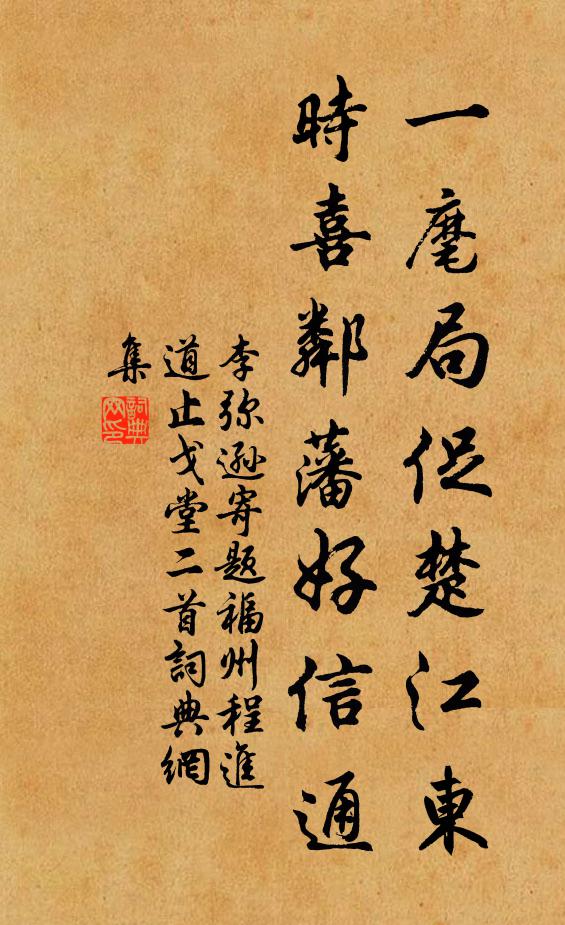 一麾局促楚江東
時喜鄰藩好信通
李弥遜寄題福州程進
道止戈堂二首詞典網
集
詞典網印